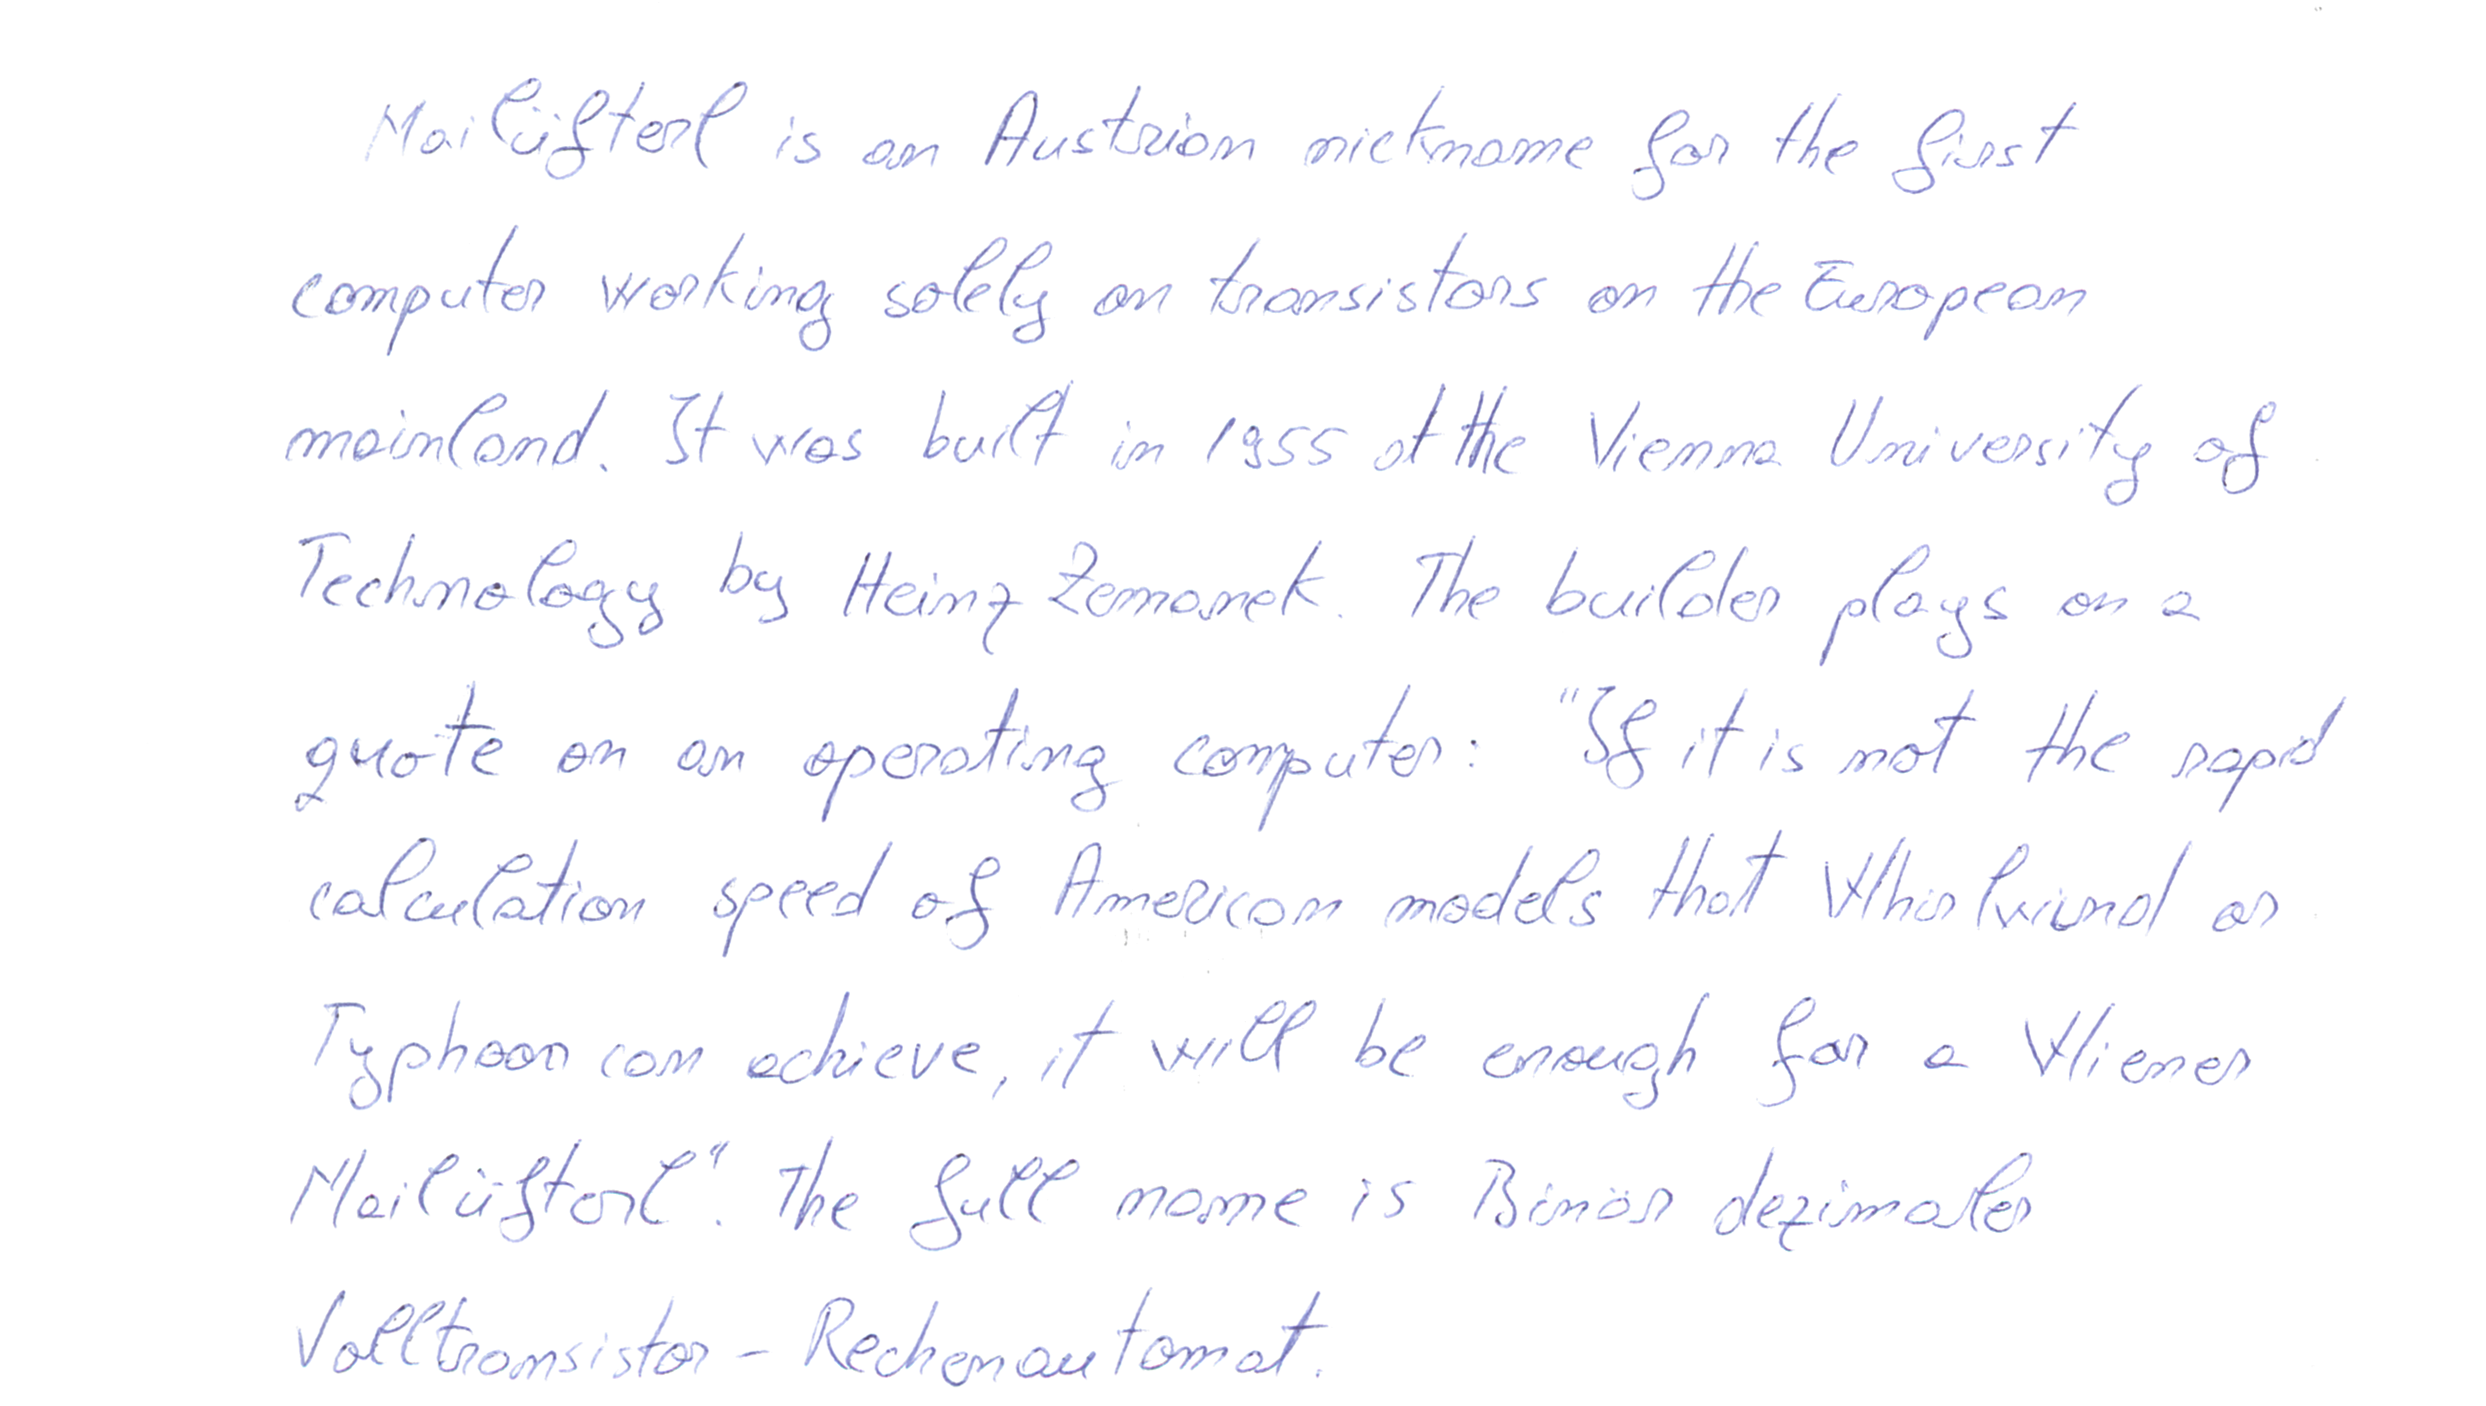 Mailüfterl is an Austrian nickname for the first
computer working solely on transistors on the European
mainland. It was built in 1955 at the Vienna University of
Technology by Heinz Zemanek. The builder plays on a
quote on an operating computer: "If it is not the rapid
calculation speed of American models that Whirlwind or
Typhoon can achieve, it will be enough for a Wiener
Mailüfterl". The full name is Binär dezimaler
Volltransistor - Rechenautomat.